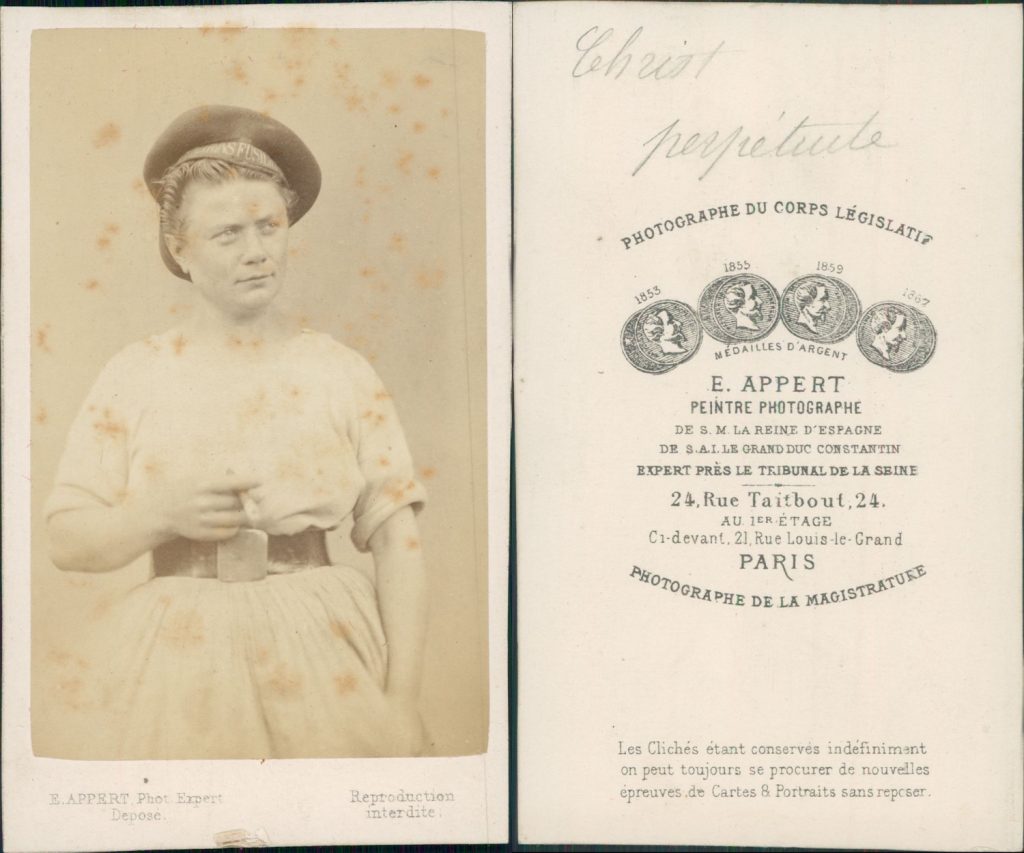 E. APPERT, Phot. Expert
Déposé.
Reproduction
interdite.
Christ
perpétuité
PHOTOGRAPHE DU CORPS LÉGISLATIF
1853
1855
1859
1867
MÉDAILLES D'ARGENT
E. APPERT
PEINTRE PHOTOGRAPHE
DE S. M. LA REINE D'ESPAGNE
DE S.A.I. LE GRAND DUC CONSTANTIN
EXPERT PRÈS LE TRIBUNAL DE LA SEINE
24, Rue Taitbout, 24.
AU 1ER ÉTAGE
Ci-devant, 21, Rue Louis-le-Grand
PARIS
PHOTOGRAPHE DE LA MAGISTRATURE
Les Clichés étant conservés indéfiniment
on peut toujours se procurer de nouvelles
épreuves de Cartes & Portraits sans reposer.